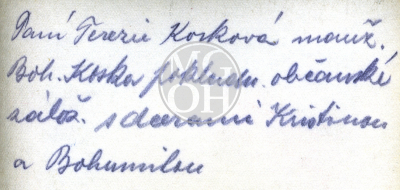 Paní Terezie Kosková manž.
Boh. Koska pokladn. občanské
zálož. s dcerami Kristinou
a Bohumilou
MOH